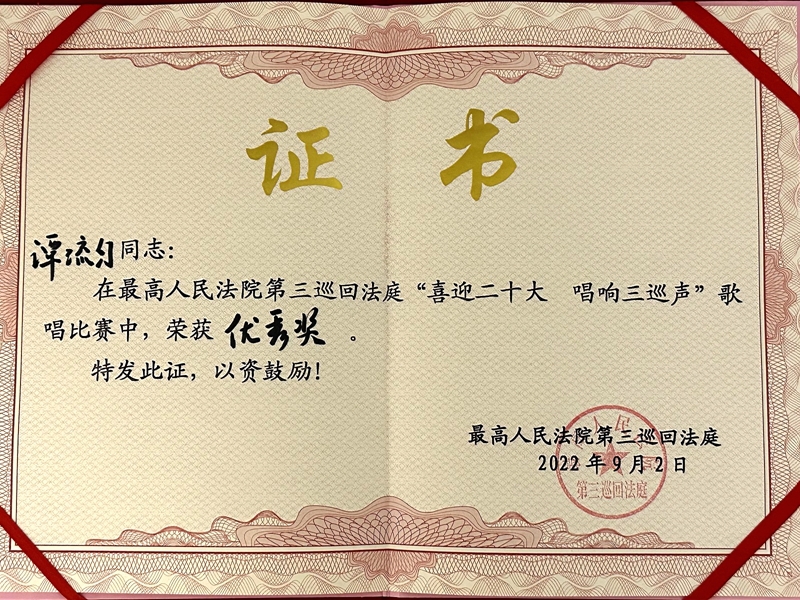 证书
谭流自同志：
在最高人民法院第三巡回法庭“喜迎二十大 唱响三巡声”歌
唱比赛中，荣获 优秀奖 。
特发此证，以资鼓励！
最高人民法院第三巡回法庭
2022年9月2日
第三巡回法庭